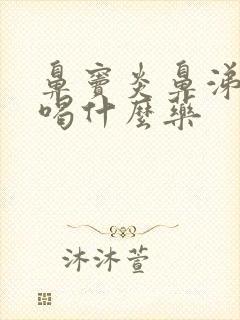 鼻窦炎鼻涕
喝什麼药
沐沐萱